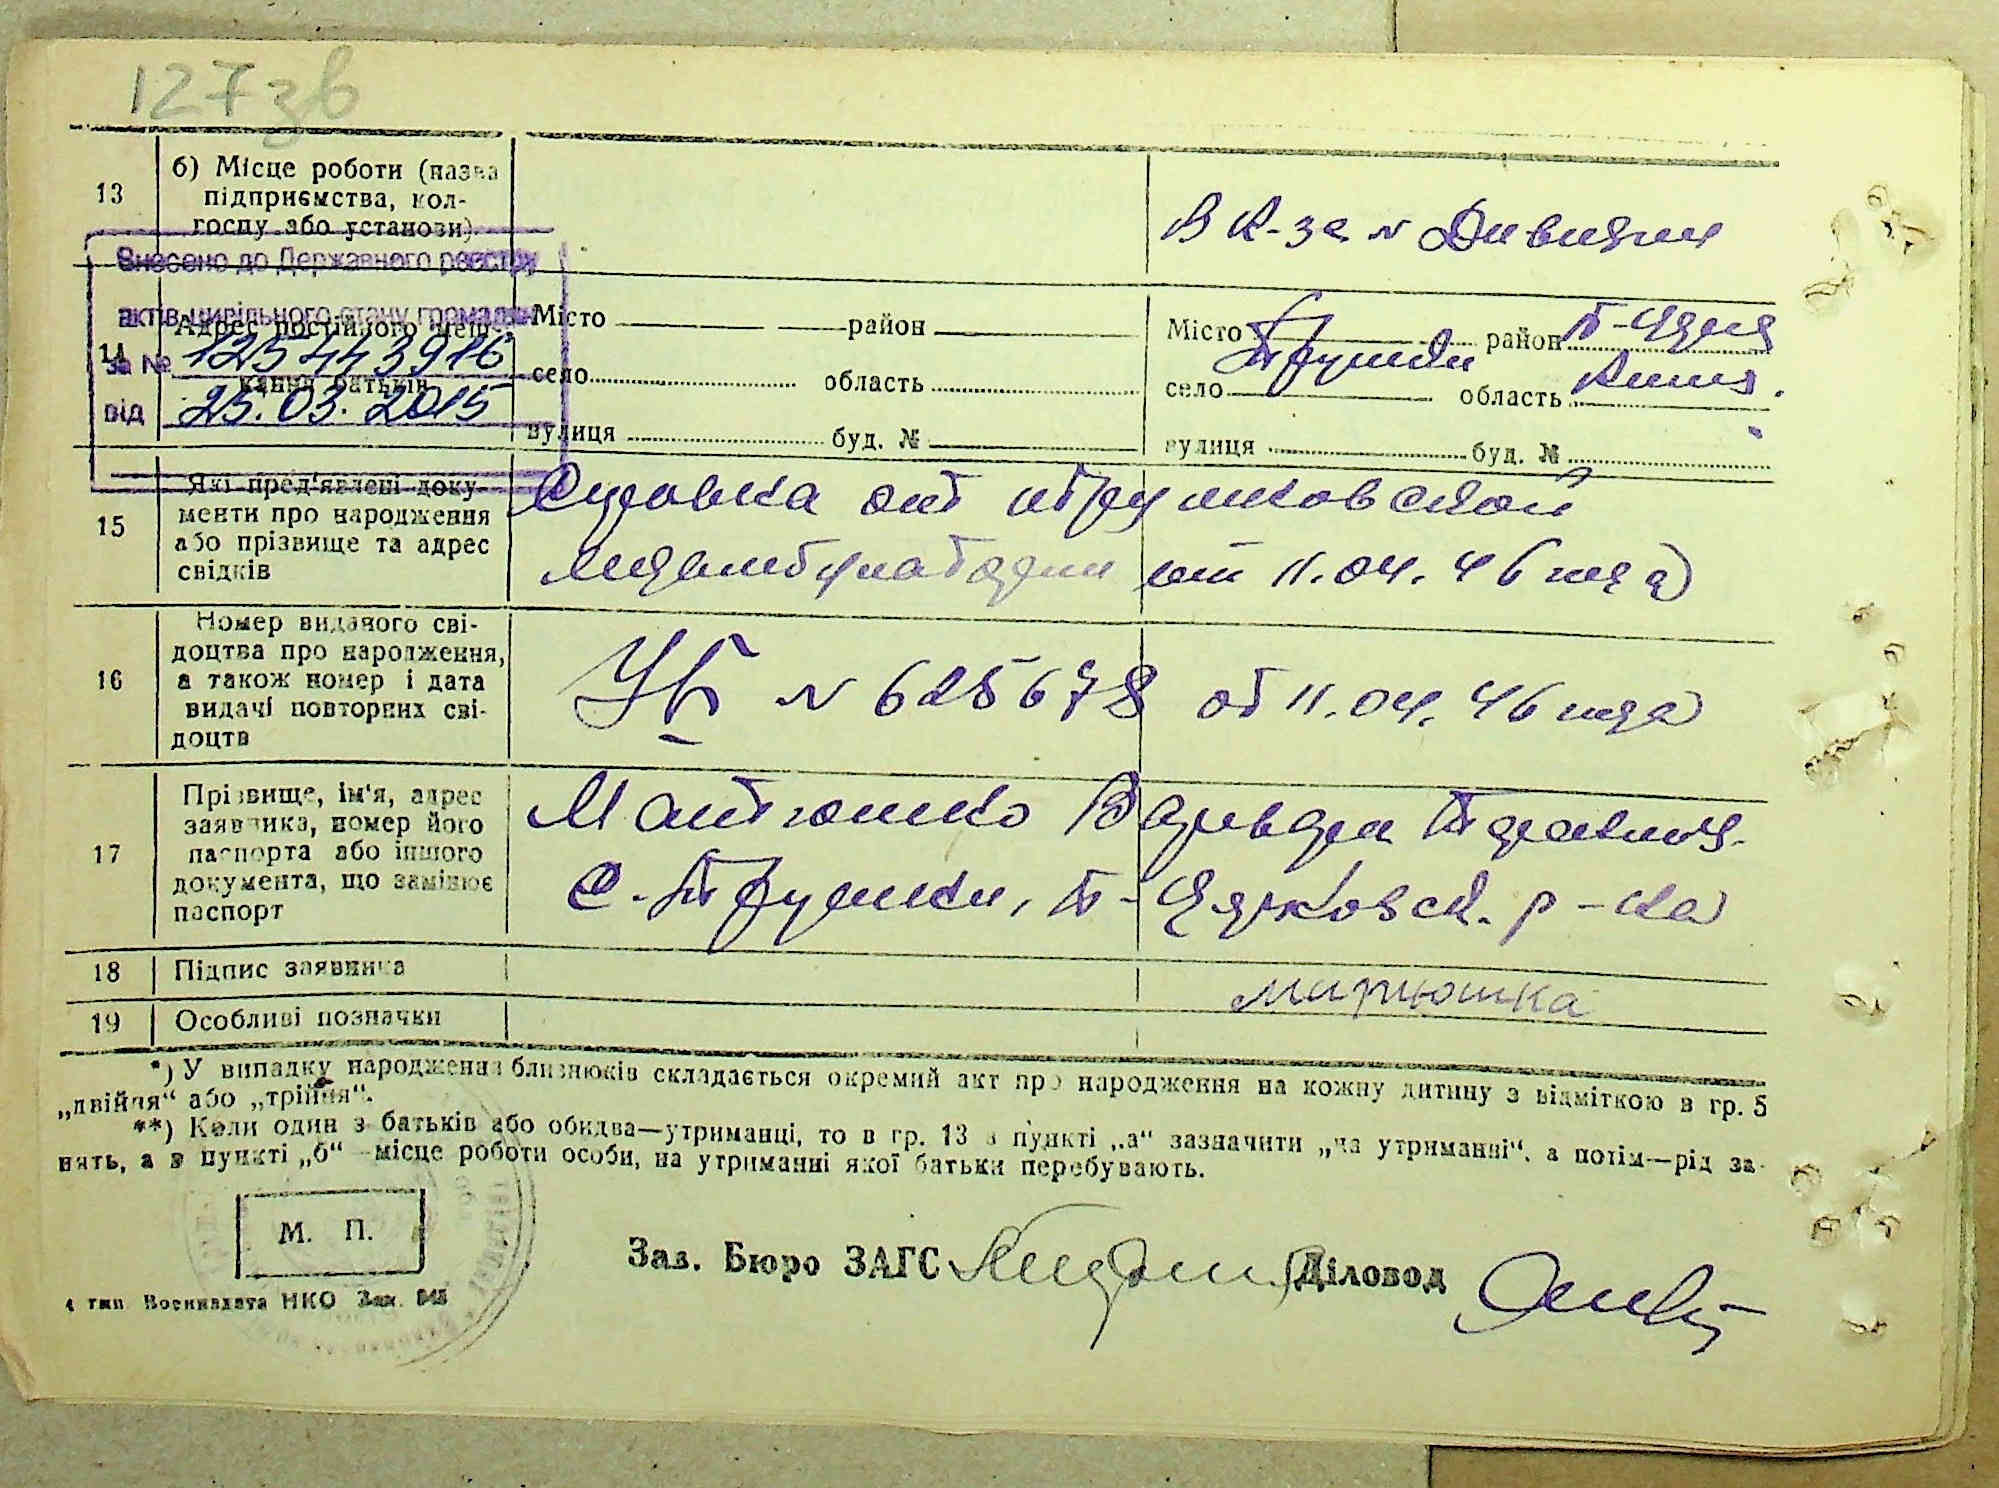 127 зв
13
б) Місце роботи (назва
підприємства, кол-
госпу або установи)
В К-зе
Внесено до Державного реєстру
актів цивільного стану громадян
за № 12544 3916
від 25.03.2015
14
Адрес постійного меш-
кання батьків
Місто район
село область
вулиця буд. №
Місто район Б-Церк
село Трушки область Киев.
вулиця буд. №
15
Які пред'явлені доку-
менти про народження
або прізвище та адрес
свідків
Справка от Трушковской
от 11.04.46 года
16
Номер виданого сві-
доцтва про народження,
а також номер і дата
видачі повторних сві-
доцтв
УБ № 625678 от 11.04.46 года
17
Прізвище, ім'я, адрес
заявника, номер його
паспорта або іншого
документа, що замінює
паспорт
Матюшко Варвара
с. Трушки, Б-Церковск. р-на
18
Підпис заявника
19
Особливі позначки
*) У випадку народження близнюків складається окремий акт про народження на кожну дитину з відміткою в гр. 5
„двійня“ або „трійня“.
**) Коли один з батьків або обидва—утриманці, то в гр. 13 в пункті „а“ зазначити „на утриманні“, а потім—рід за-
нять, а в пункті „б“ —місце роботи особи, на утриманні якої батьки перебувають.
М. П.
Зав. Бюро ЗАГС
Діловод
4 тип. Воениздата НКО Зак. 845